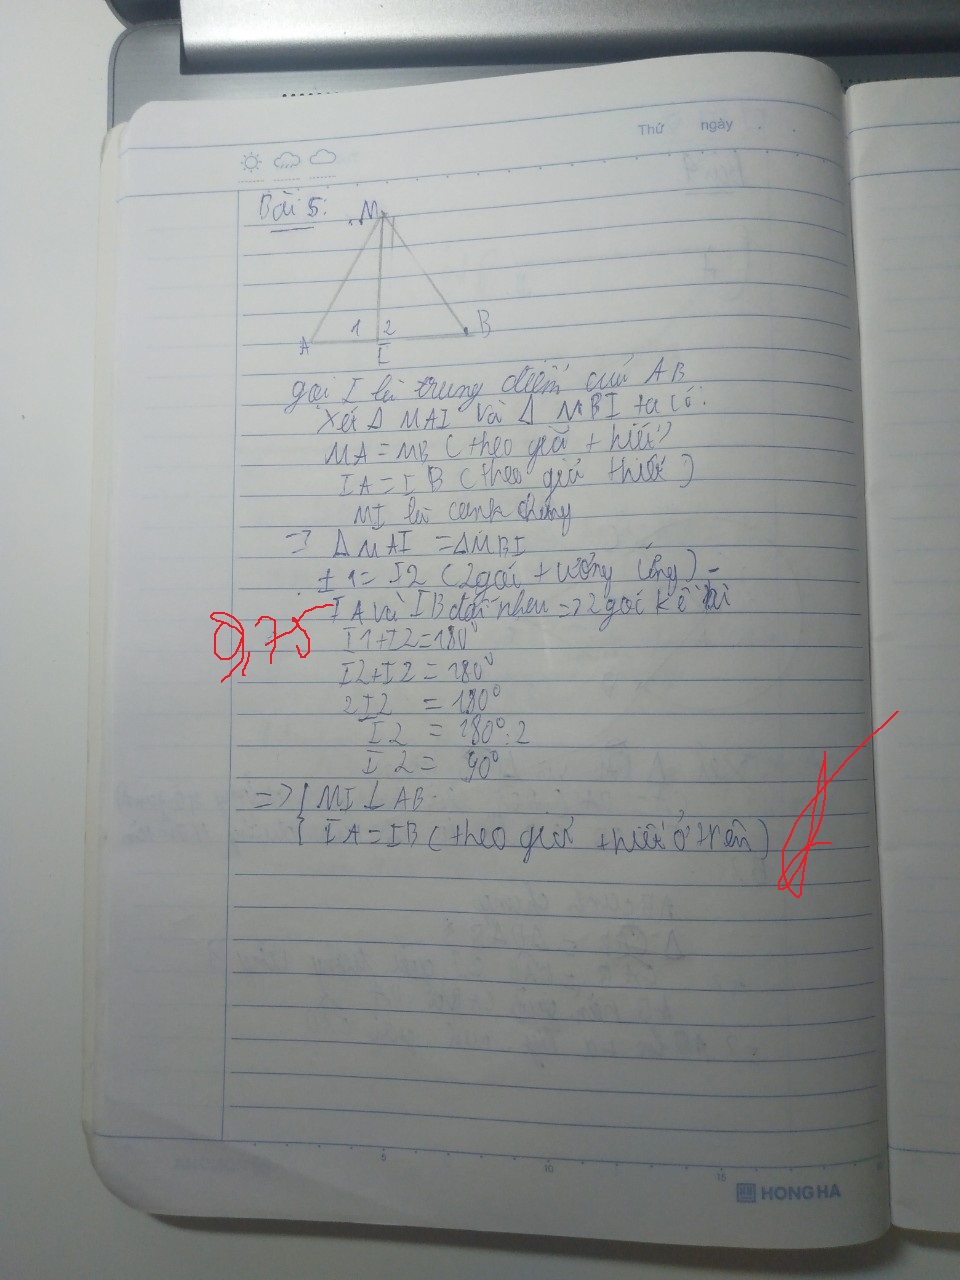 Thứ ngày
Bài 5:
M
1 2
A I B
gọi I là trung điểm của AB
Xét Δ MAI và Δ MBI ta có:
MA = MB (theo giả thiết)
IA = IB (theo giả thiết)
MI là cạnh chung
=> Δ MAI = Δ MBI
I1 = I2 (2 gói tương ứng)
IA và IB đối nhau => 2 gói kề bù
9,75
I1+I2=180°
I2+I2 = 180°
2I2 = 180°
I2 = 180°:2
I2 = 90°
=> { MI ⊥ AB
{ IA = IB (theo giả thiết ở trên)
5 10 15
HONG HA